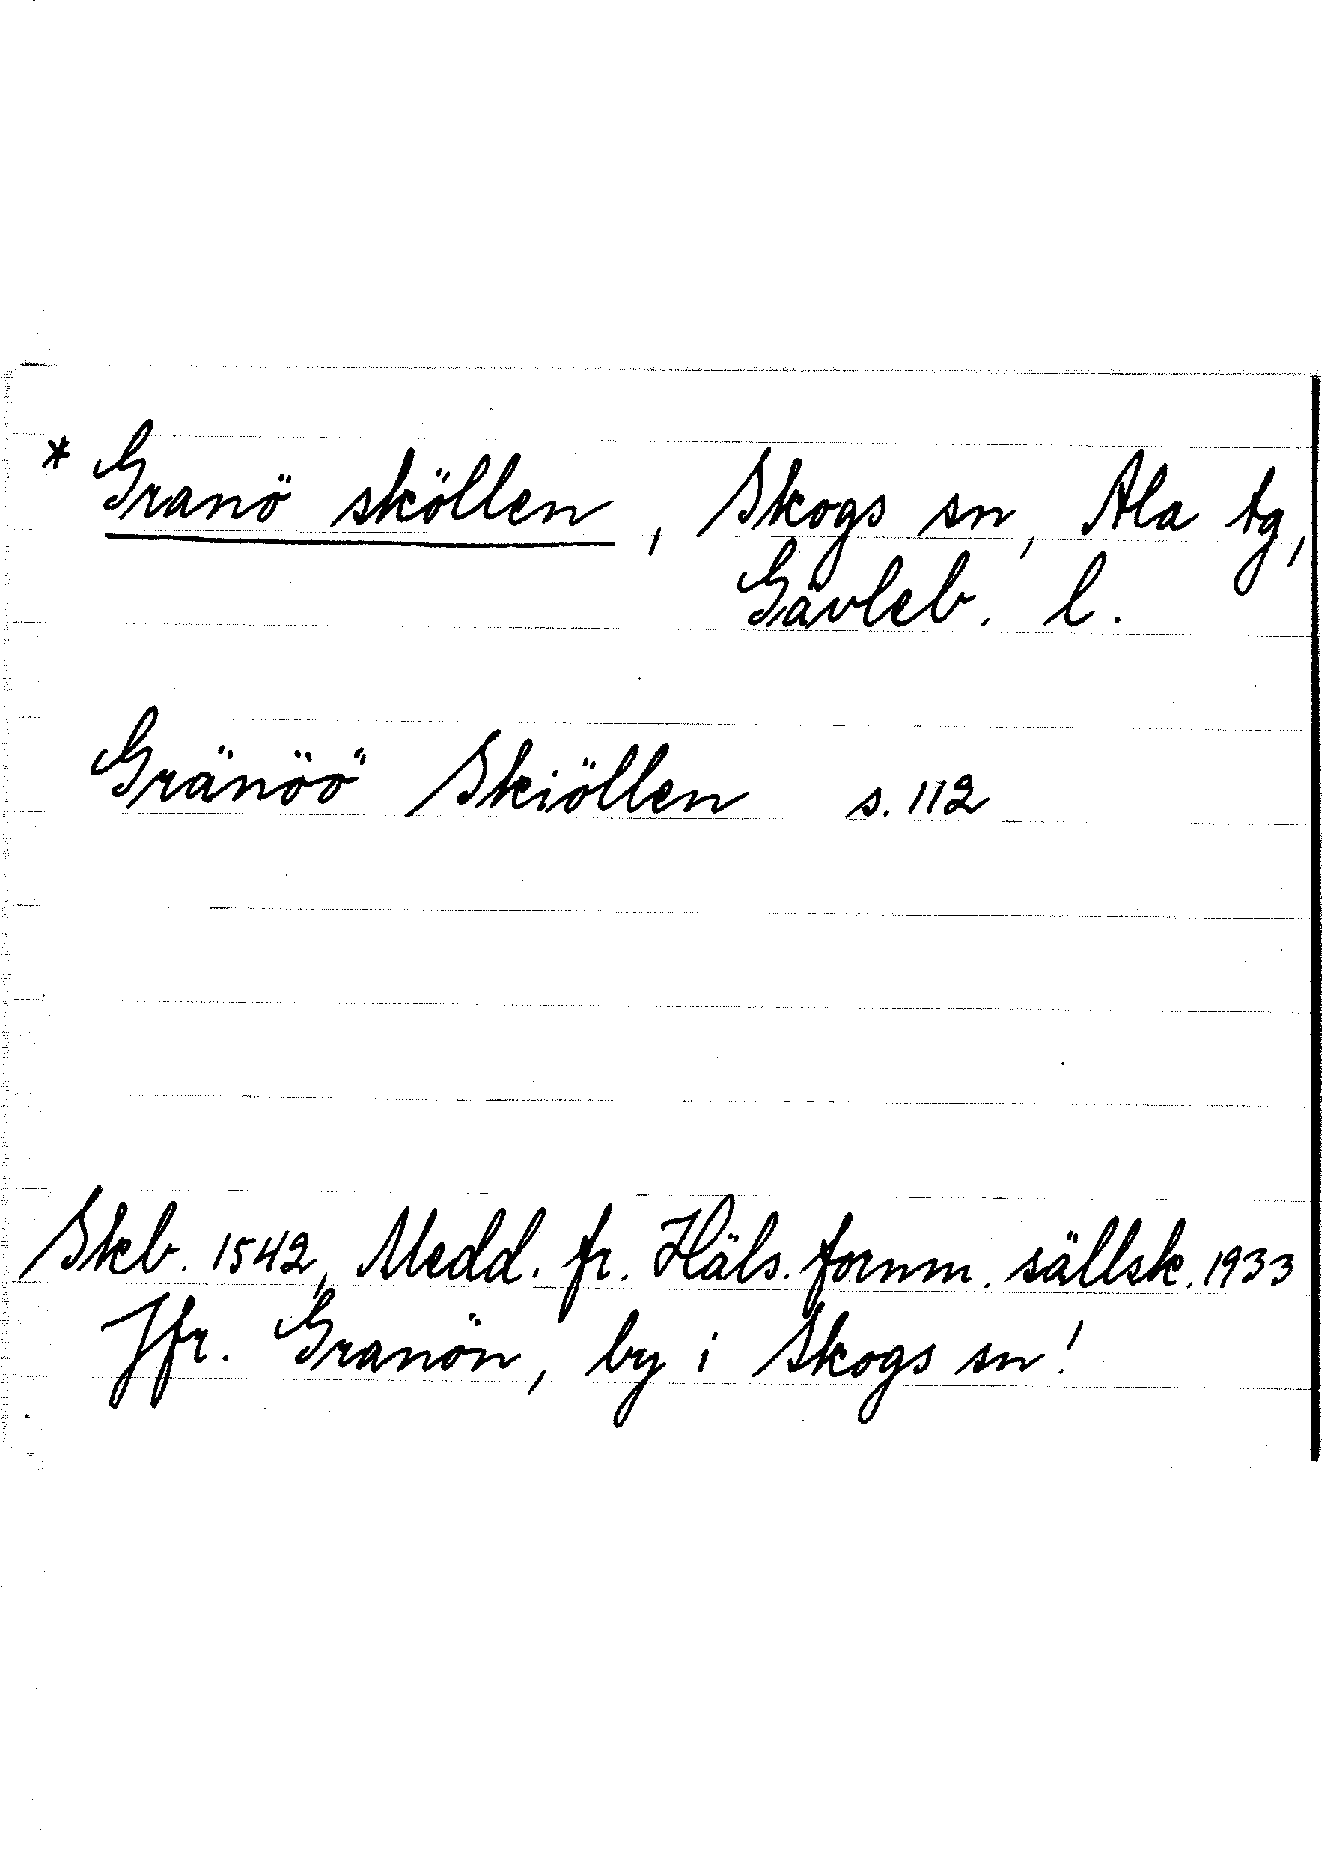 * Granö sköllen, Skogs sn, Ala tg,
Gävleb. l.
Gränöö Skiöllen s. 112
Skb. 1542, Medd. fr. Häls. fornm. sällsk. 1933
Jfr. Granön, by i Skogs sn!